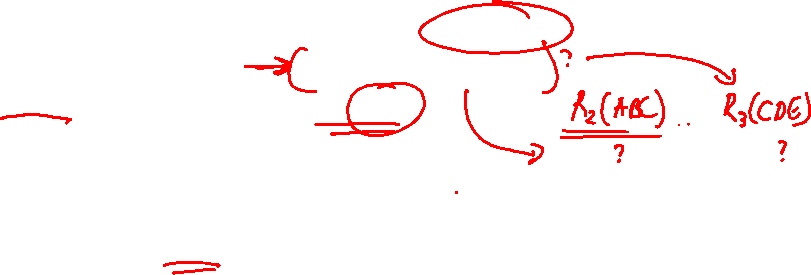 ?
R₂(ABC) .. R₃(CDE)
? ?